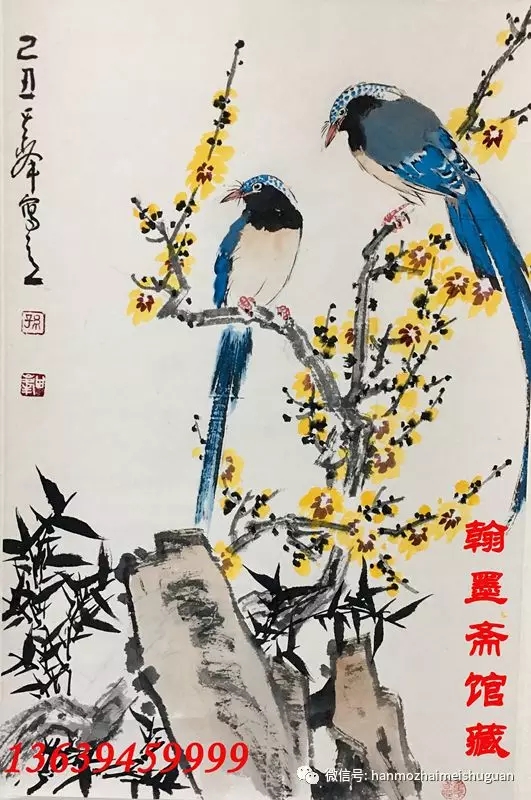 己丑其峯写之
翰墨斋馆藏
13639459999
微信号: hanmozhaimeishuguan